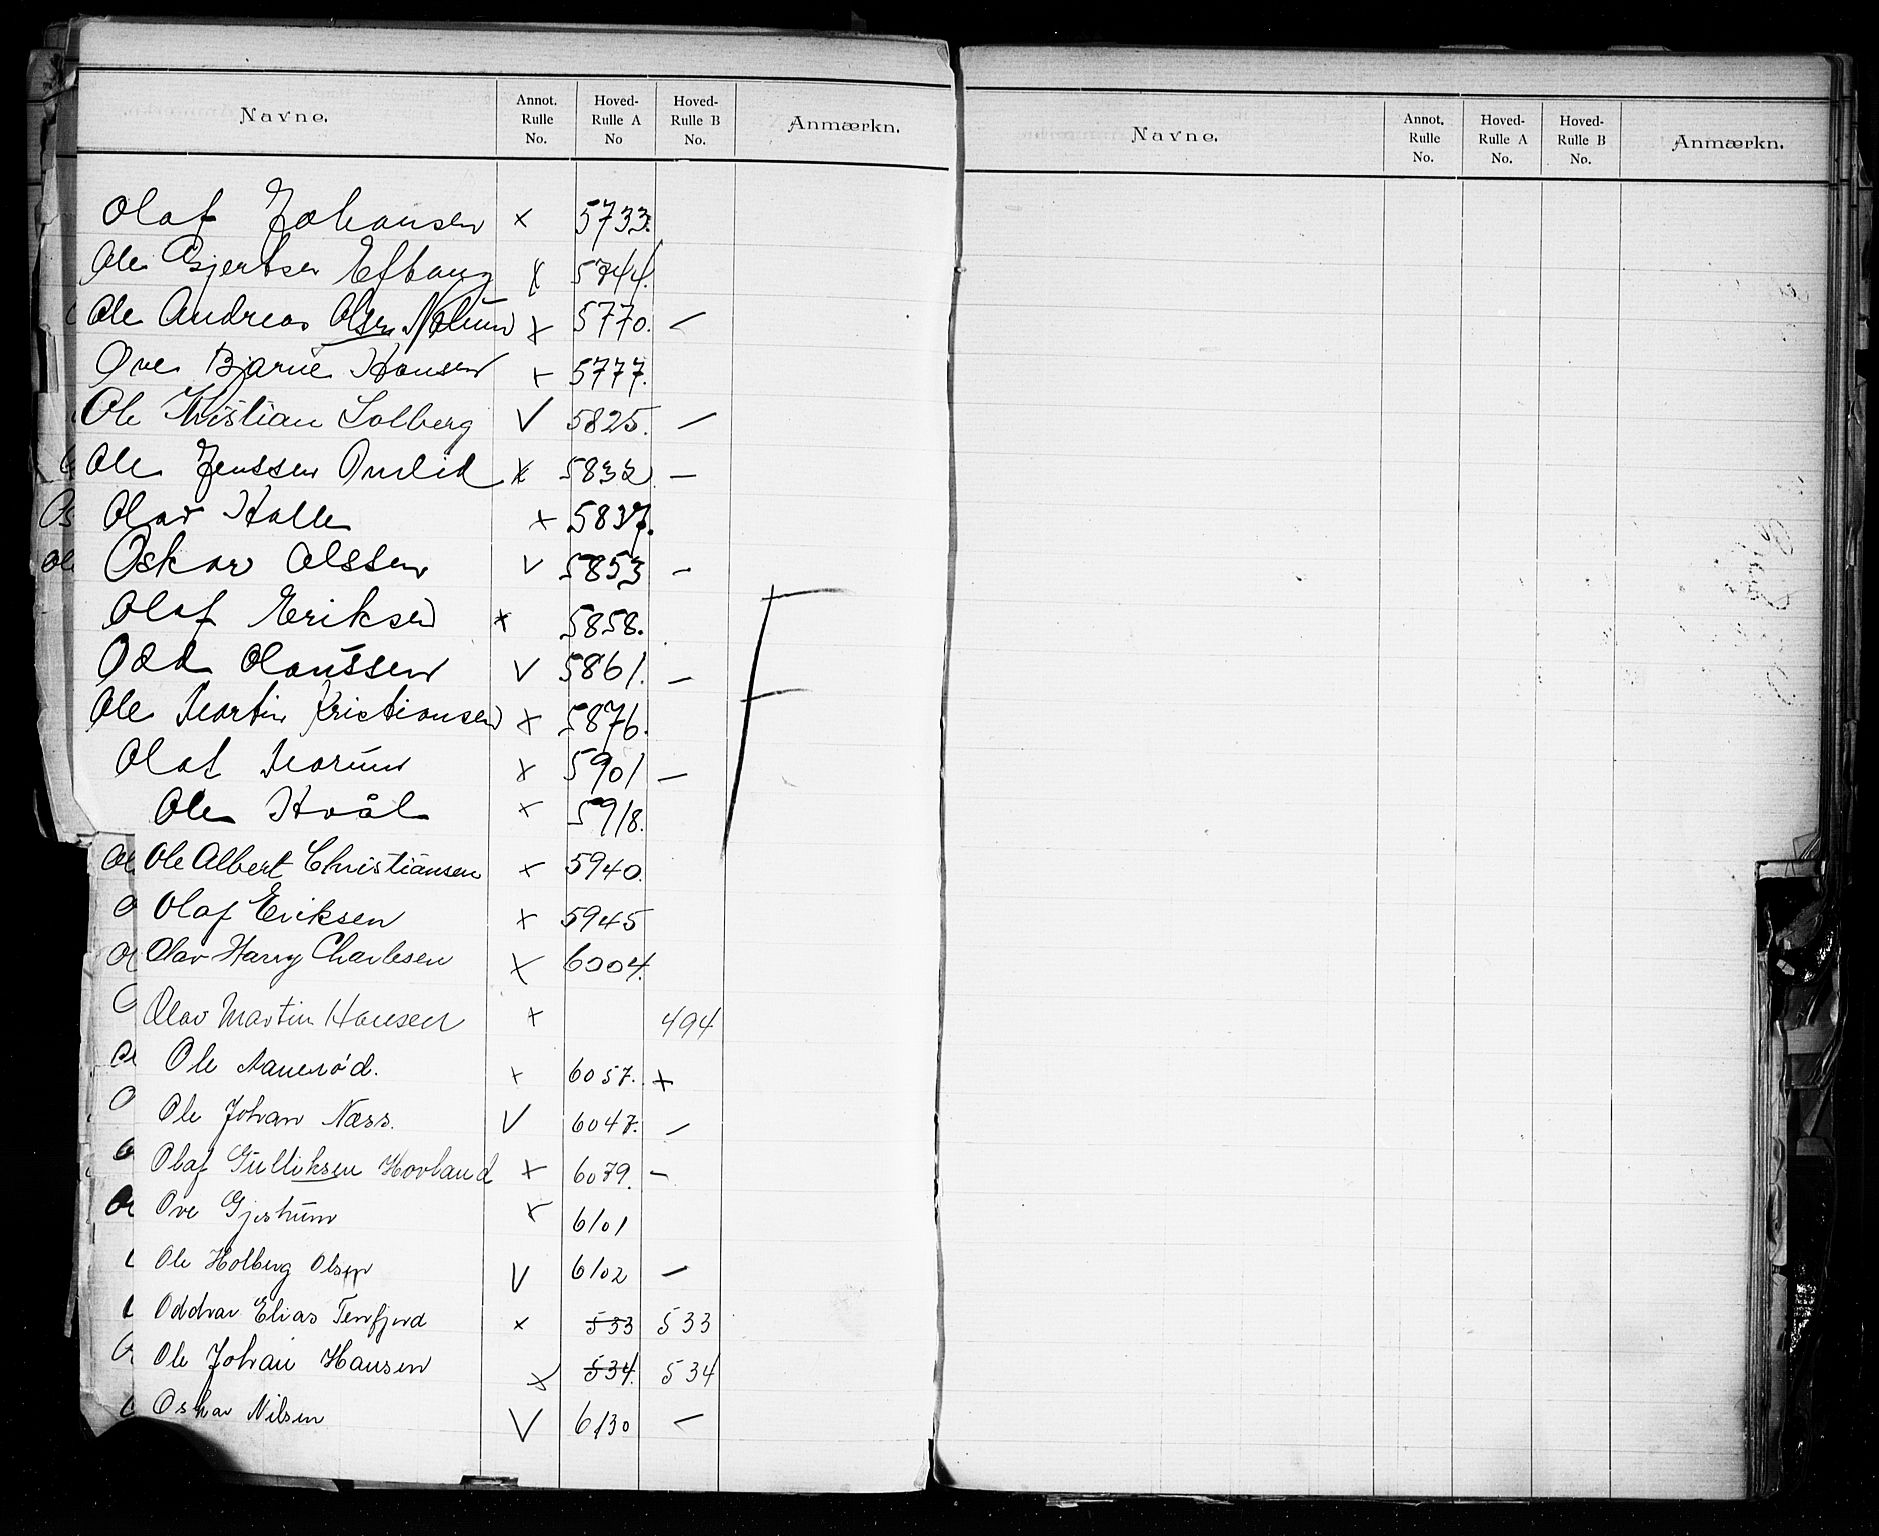 Navne. Annot. Rulle No. Hoved-Rulle A No Hoved-Rulle B No. Anmærkn.
Olaf Johansen x 5733.
Ole Gjertsen Eftang x 5744.
Ole Andreas Olsen Nolun x 5770. –
Ove Bjarne Hansen x 5777.
Ole Kristian Solberg V 5825. –
Ole Jenssen Omlid x 5832. –
Olav Halle x 5837.
Oskar Olssen V 5853 –
Olaf Eriksen x 5858.
Odd Olaussen V 5861. –
Ole Martin Kristiansen x 5876.
Olaf Marum x 5901 –
Ole Hvål x 5918.
Ole Albert Christiansen x 5940.
Olaf Eriksen x 5945
Olav Harry Charlesen x 6004.
Olav Martin Hansen x 494
Ole Aanerød. x 6057. x
Ole Johan Næss. V 6047. –
Olaf Gulliksen Hovland x 6079. –
Ove Gjestum x 6101
Ole Holberg Olsen V 6102 –
Oddvar Elias Terfjord x 533 533
Ole Johan Hansen x 534. 534
Oskar Nilsen V 6130 –
F
Navne. Annot. Rulle No. Hoved-Rulle A No. Hoved-Rulle B No. Anmærkn.